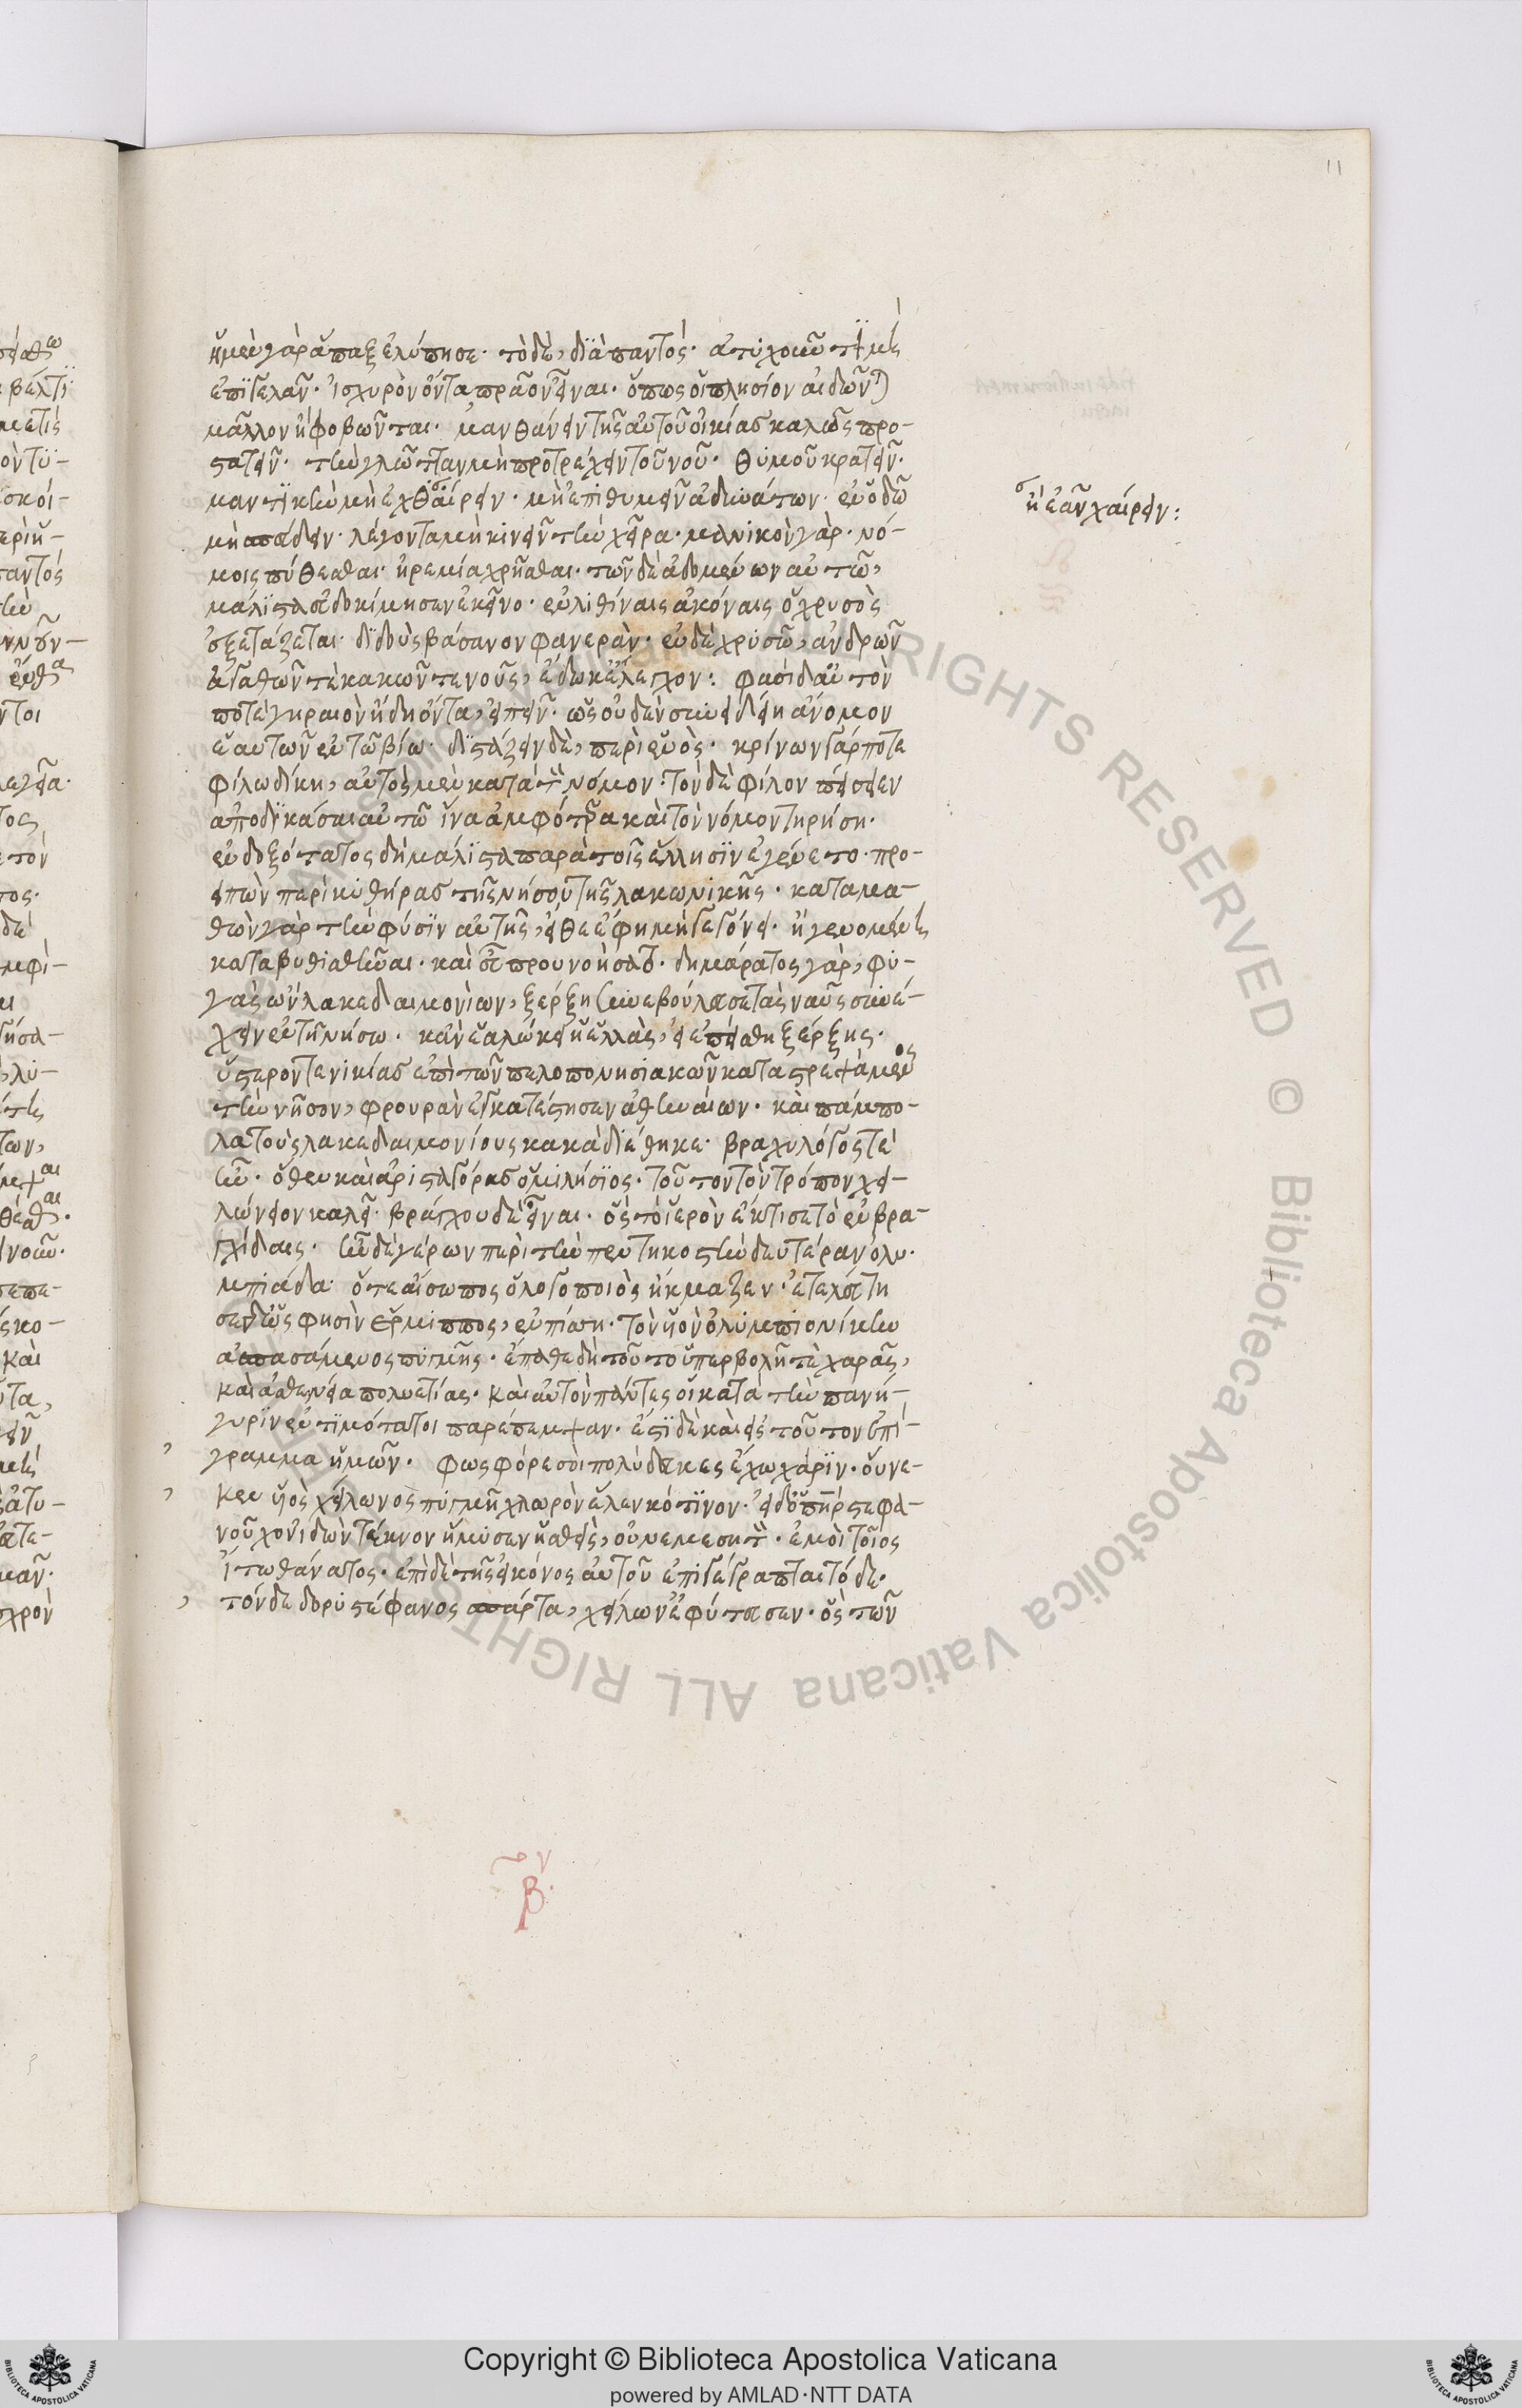 11
ἡ μὲν γὰρ ἅπαξ ἐλύπησε· τὸ δὲ, διὰ παντός· ἀτυχοῦντι μὴ
ἐπιγελᾶν· ἰσχυρὸν ὄντα πρᾶον εἶναι· ὅπως οἱ πλησίον αἰδῶνται
μᾶλλον ἢ φοβῶνται· μανθάνειν τῆς αὑτοῦ οἰκίας καλῶς προ-
στατεῖν· τὴν γλῶτταν μὴ προτρέχειν τοῦ νοῦ· θυμοῦ κρατεῖν·
μαντικὴν μὴ ἐχθαίρειν· μὴ ἐπιθυμεῖν ἀδυνάτων· ἐν ὁδῷ
μὴ σπεύδειν· λέγοντα μὴ κινεῖν τὴν χεῖρα· μανικὸν γάρ· νό-
μοις πείθεσθαι· ἠρεμία χρῆσθαι· τῶν δὲ ἀδομένων αὐτῶ,
μάλιστα εὐδοκίμησεν ἐκεῖνο· ἐν λιθίναις ἀκόναις ὁ χρυσὸς
ἐξετάζεται· διδοὺς βάσανον φανεράν· ἐν δὲ χρυσῶ, ἀνδρῶν
ἀγαθῶν τὲ κακῶν τε νοῦς, ἔδωκ' ἔλεγχον: φασὶ δ' αὐτόν
ποτε γηραιὸν ἤδη ὄντα, εἰπεῖν· ὡς οὐδὲν συνειδείη ἄνομον
ἑαυτῶ ἐν τῶ βίω· διστάζειν δὲ, περὶ ἑνός· κρίνων γάρ ποτε
φίλω δίκη, αὐτὸς μὲν κατὰ τὸν νόμον· τὸν δὲ φίλον πείσειεν
ἀποδικάσαι αὐτῶ ἵνα ἀμφότερα καὶ τὸν νόμον τηρήση·
ἐνδοξότατος δὴ μάλιστα παρὰ τοῖς ἕλλησιν ἐγένετο· προ-
ειπὼν περὶ κυθήρας τῆς νήσου τῆς λακωνικῆς· καταμα-
θὼν γὰρ τὴν φύσιν αὐτῆς, εἴθε ἔφη μὴ γεγόνει· ἢ γενομένη
καταβυθισθῆναι· καὶ εὖ προυνοήσατο· δημάρατος γάρ, φυ-
γὰς ὢν λακεδαιμονίων, ξέρξη συνεβούλευσε τὰς ναῦς συνέ-
χειν ἐν τῆ νήσω· κἂν ἑαλώκει ἡ ἑλλὰς, εἰ ἐπείσθη ξέρξης·
ὕστερόν τε νικίας ἐπὶ τῶν πελοπονησιακῶν καταστρεψάμενος
τὴν νῆσον, φρουρὰν ἐγκατέστησεν ἀθηναίων· καὶ πάμπο-
λα τοὺς λακεδαιμονίους κακὰ διέθηκε· βραχυλόγος τε
ἦν· ὅθεν καὶ ἀρισταγόρας ὁ μιλήσιος· τοῦτον τὸν τρόπον χει-
λώνειον καλεῖ· βράγχου δὲ εἶναι· ὃς τὸ ἱερὸν ἔκτισε τὸ ἐν βρα-
γχίδαις· ἦν δὲ γέρων περὶ τὴν πεντηκοστὴν δευτέραν ὀλυ-
μπιάδα· ὅτε αἴσωπος ὁ λογοποιὸς ἤκμαζεν· ἐτελεύτη
σε δ' ὥς φησιν ἕρμιππος, ἐν πίση· τὸν υἱὸν ὀλυμπιονίκην
ἀσπασάμενος πυγμῆς· ἔπαθε δὴ τοῦτο ὑπερβολῆ τὲ χαρᾶς,
καὶ ἀσθενεία πολυετίας· καὶ αὐτὸν πάντες οἱ κατὰ τὴν πανή-
γυριν ἐντιμότατοι παρέπεμψαν· ἔστι δὲ καὶ εἰς τοῦτον ἐπί-
γραμμα ἡμῶν· φωσφόρε σοὶ πολύδευκες ἔχω χάριν· οὕνε-
κεν υἱὸς χείλωνος πυγμῆ χλωρὸν ἕλεν κότινον· εἰ δ' ὁ πατὴρ στεφα-
νοῦχον ἰδὼν τέκνον ἤμυσεν ἡσθεὶς, οὐ νεμεσητόν· ἐμοὶ τοῖος
ἴτω θάνατος· ἐπὶ δὲ τῆς εἰκόνος αὐτοῦ ἐπιγέγραπται τόδε·
τόνδε δορυστέφανος σπάρτα, χείλων' ἐφύτευσεν· ὃς τῶν
ἢ ἐᾶν χαίρειν:
β·